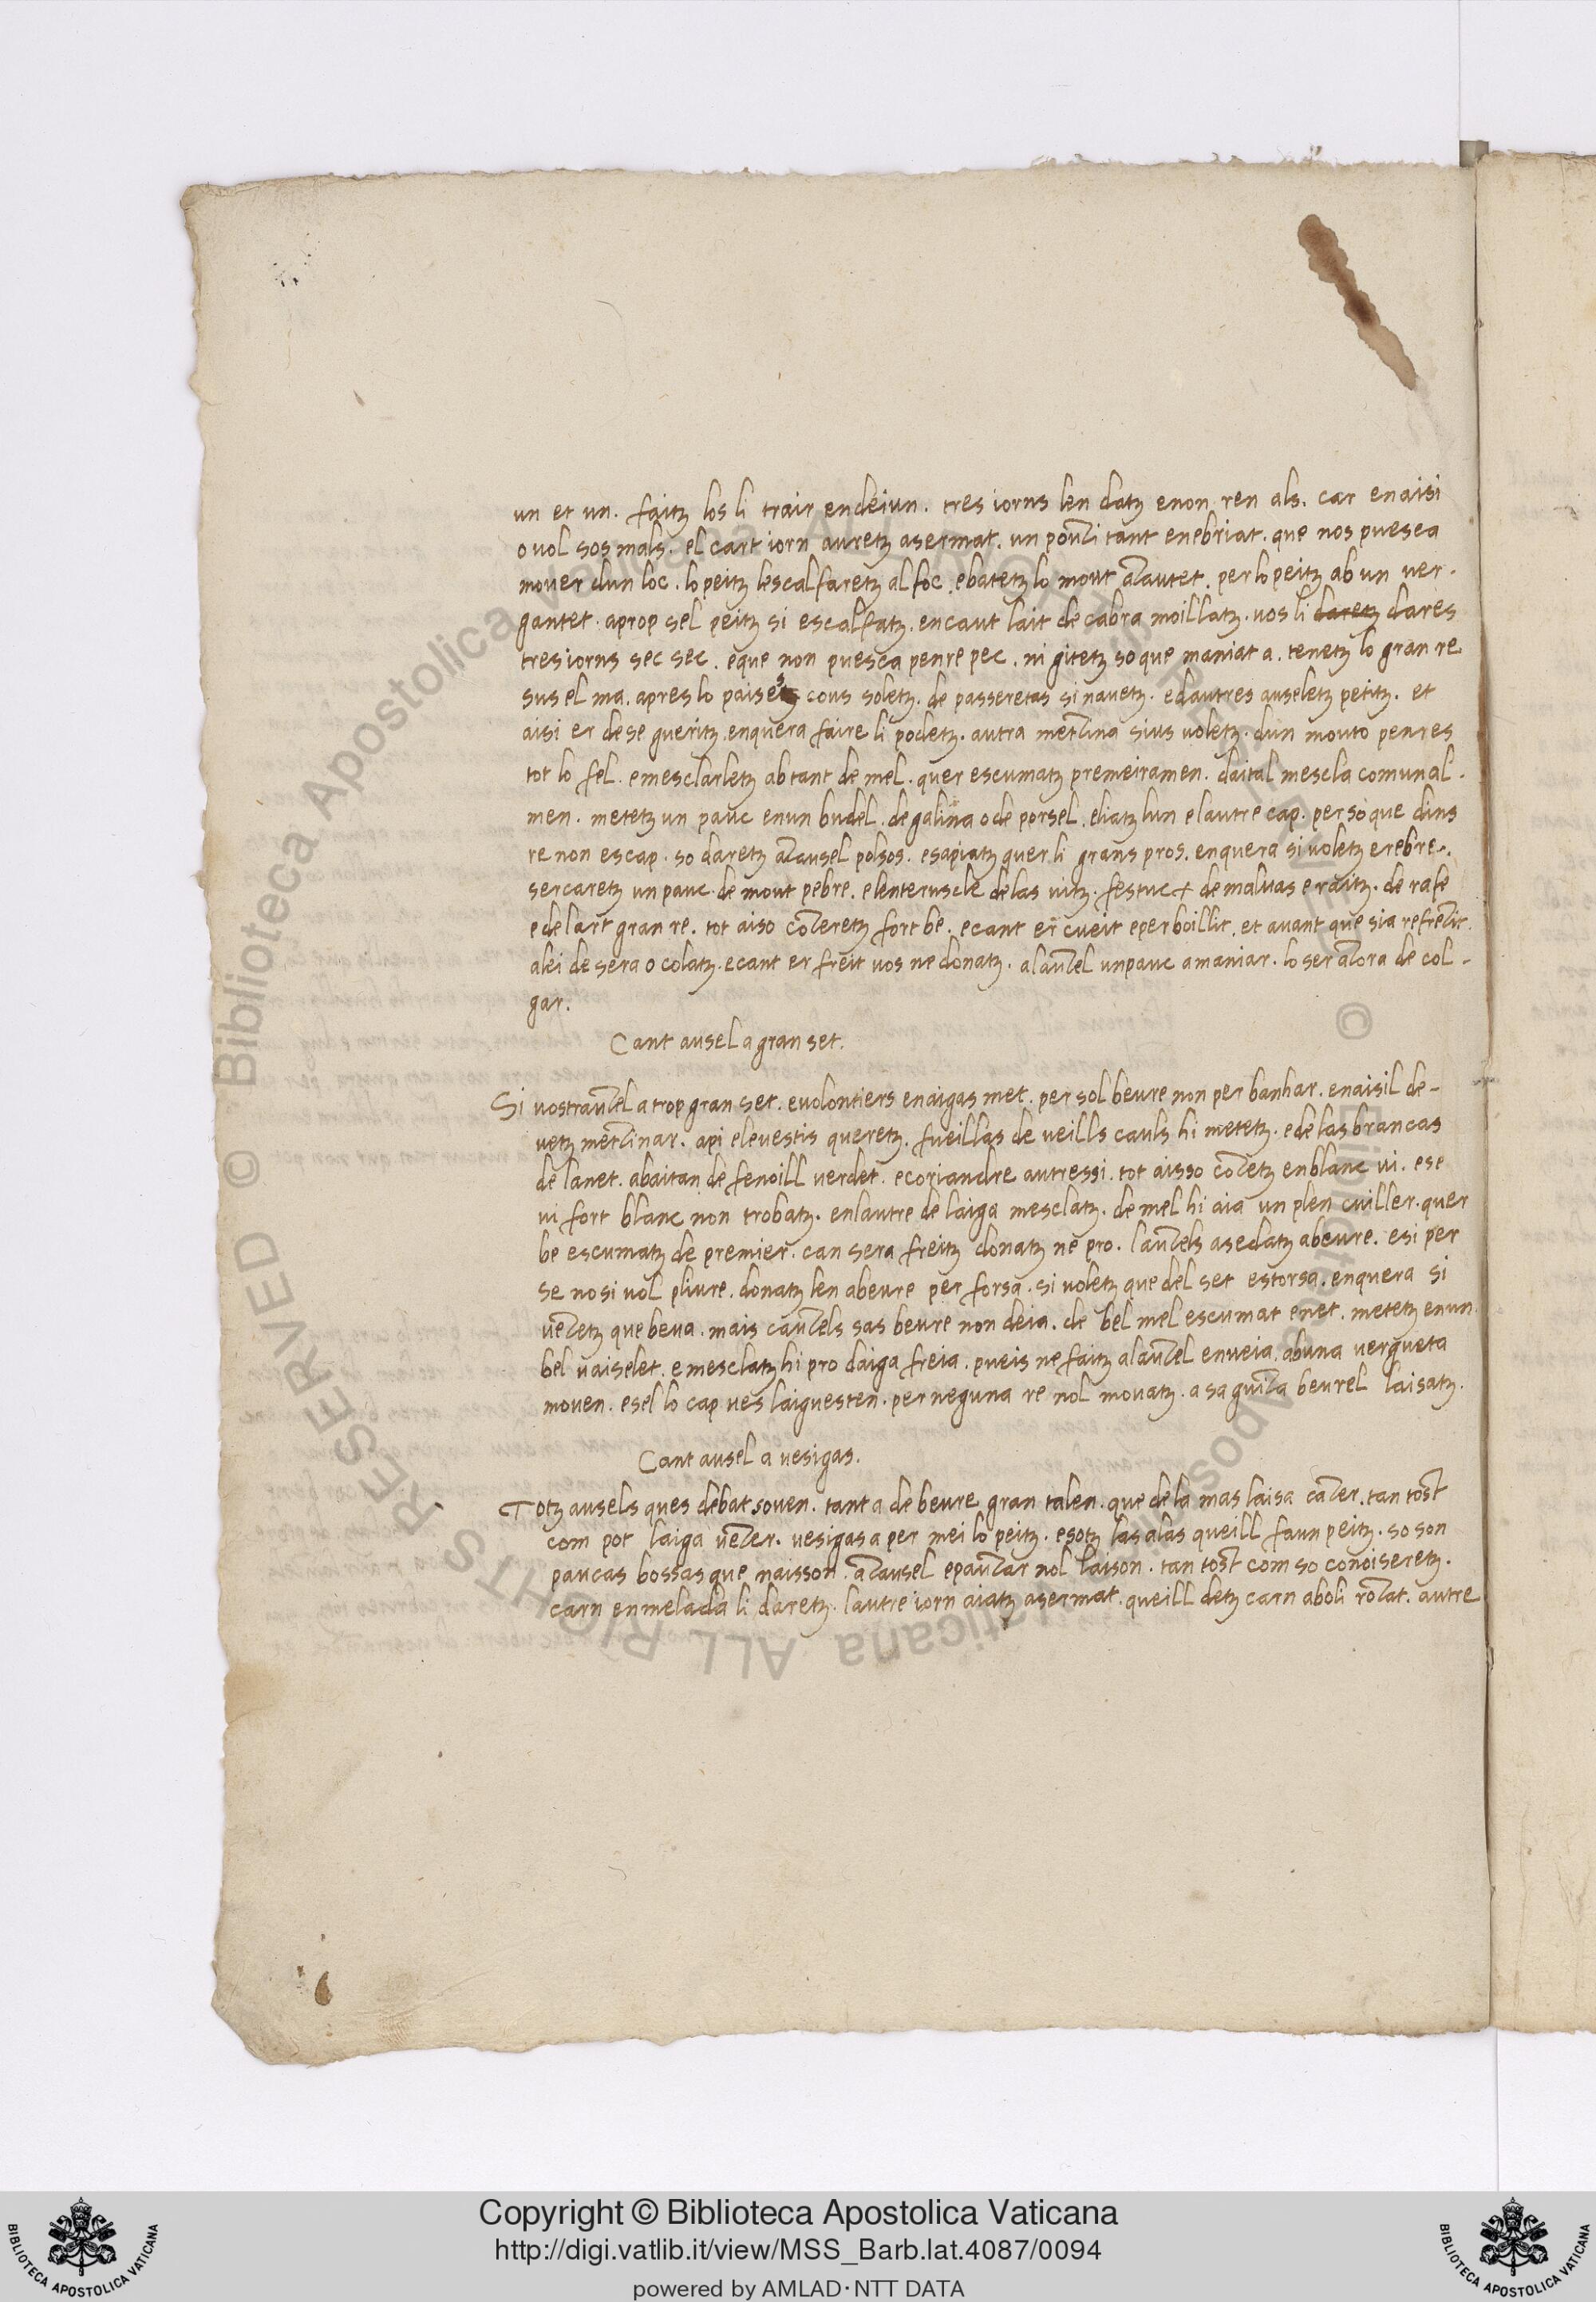 un et un. faitz los li trair endeiun. tres iorns len datz enon ren als. car enaisi
o vol sos mals. el cart iorn auretz asermat. un pouzi tant enebriat. que nos puesca
mouer dun loc. lo peitz lescalfaretz al foc. ebatetz lo mout azautet. per lo peitz ab un uer-
gantet. aprop sel peitz si escalfatz. encaut lait de cabra moillatz. uos li daretz dares
tres iorns sec sec. eque non puesca penre pec. ni gitetz so que maniat a. tenetz lo gran re
sus el ma. apres lo paises cous soletz. de passeretas si nauetz. edautres auseletz petitz. et
aisi er dese gueritz. enquera faire li podetz. autra metzina sius uoletz. dun mouto penres
tot lo fel. emesclarletz abtant de mel. quer escumatz premeiramen. daital mescla comunal-
men. metetz un pauc enun budel. de galina o de porsel. eliatz lun elautre cap. perso que dins
re non escap. so daretz azausel polsos. esapiatz quer li grans pros. enquera si uoletz erebre.
sercaretz un pauc de mout pebre. elenteruscle de las uitz. festuc de maluas eraitz. de rafe
edelart gran re. tot aiso cozeretz fort be. ecant er cueit eperboillit. et auant que sia refrezit.
alei de sera o colatz. ecant er freit uos ne donatz. alauzel unpauc amaniar. lo ser azora de col-
gar.
Cant ausel a gran set.
Si uostrauzel a trop gran set. euolontiers enaigas met. per sol beure non per banhar. enaisil de-
uetz metzinar. api eleuestis queretz. fueillas de ueills cauls hi metetz. ede las brancas
de lanet. abaitan de fenoill uerdet. ecoriandre autressi. tot aisso cozetz enblanc ui. ese
ui fort blanc non trobatz. enlautre de laiga mesclatz. de mel hi aia un plen cuiller. quer
be escumatz de premier. can sera freitz donatz ne pro. lauzels asedatz abeure. esi per
se no si uol pliure. donatz len abeure per forsa. si uoletz que del set estorsa. enquera si
uezetz que beua. mais cauzels sas beure non deia. de bel mel escumat enet. metetz enun
bel uaiselet. emesclatz hi pro daiga freia. pueis ne faitz alauzel enueia. abuna uergueta
mouen. esel lo cap ues laiguesten. per neguna re nol mouatz. a sa guiza beurel laisatz.
Cant ausel a uesigas.
Totz ausels ques debat souen. tant a de beure gran talen. que de la mas laisa cazer. tan tost
com pot laiga uezer. uesigas a per mei lo peitz. esotz las alas queill faun peitz. so son
paucas bossas que naisson. azausel epauzar nol laison. tan tost com so conoiseretz.
carn enmelada li daretz. lautre iorn aiatz asermat. queill detz carn aboli rozat. autre
Copyright © Biblioteca Apostolica Vaticana
http://digi.vatlib.it/view/MSS_Barb.lat.4087/0094
powered by AMLAD·NTT DATA